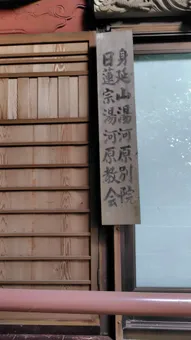 身延山湯河原別院
日蓮宗湯河原教会